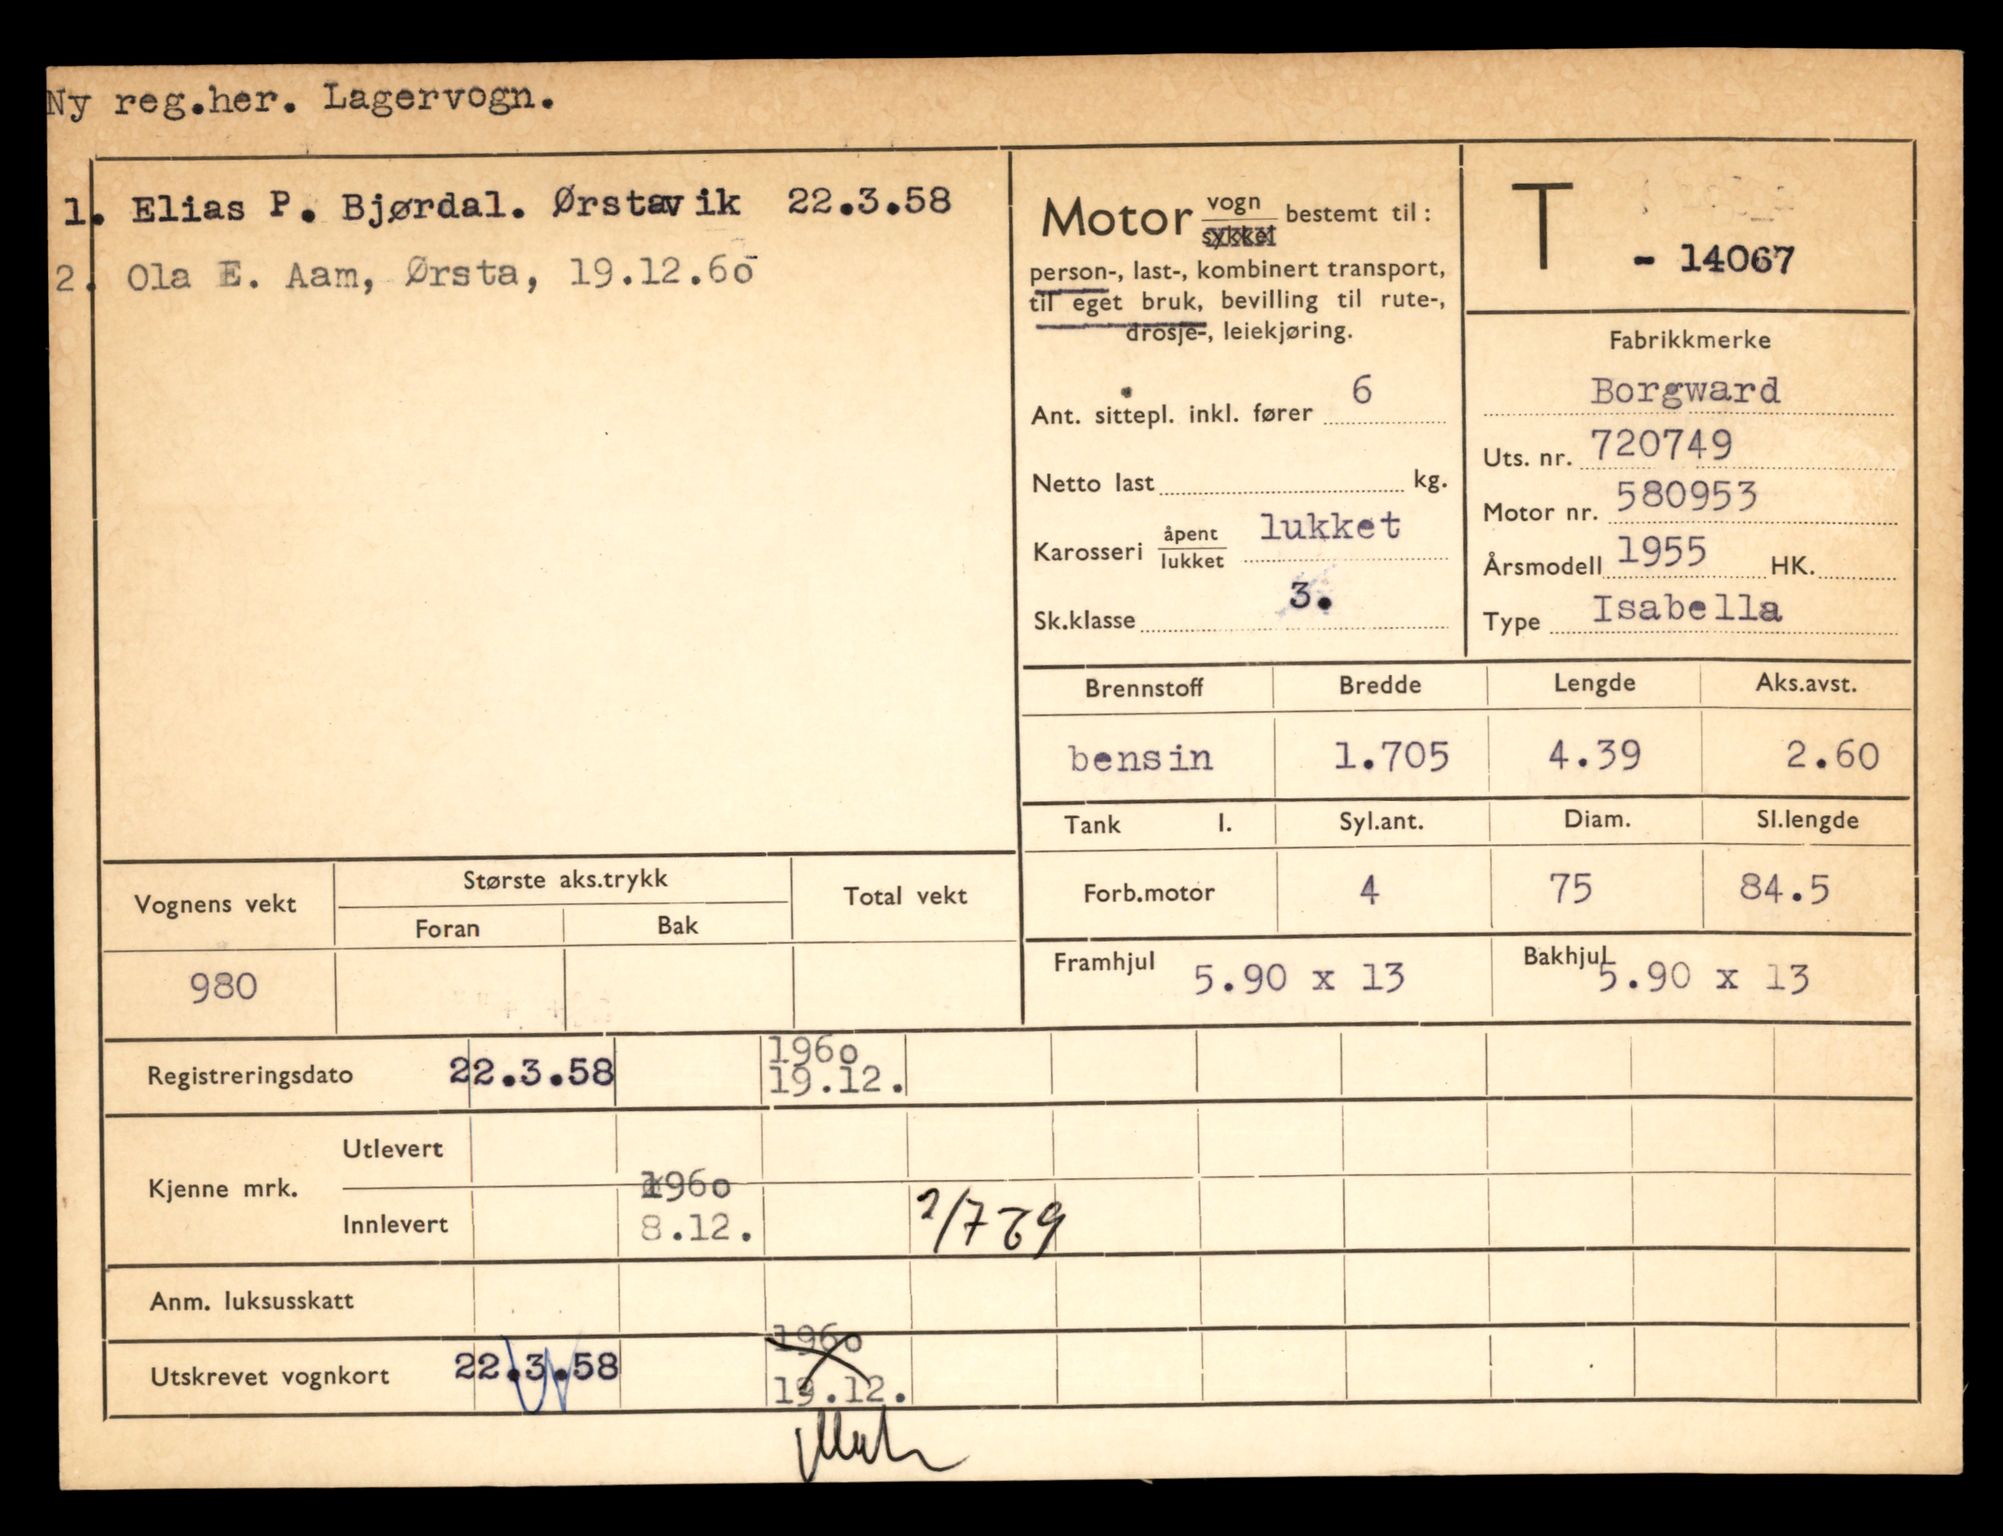 Ny reg.her. Lagervogn.
1. Elias P. Bjørdal. Ørstavik 22.3.58
2. Ola E. Aam, Ørsta, 19.12.60
Motor vogn/sykkel bestemt til:
person-, last-, kombinert transport,
til eget bruk, bevilling til rute-,
drosje-, leiekjøring.
Ant. sittepl. inkl. fører 6
Netto last kg.
Karosseri åpent/lukket lukket
Sk.klasse 3.
T - 14067
Fabrikkmerke
Borgward
Uts. nr. 720749
Motor nr. 580953
Årsmodell 1955 HK.
Type Isabella
Brennstoff Bredde Lengde Aks.avst.
bensin 1.705 4.39 2.60
Tank l. Syl.ant. Diam. Sl.lengde
Forb.motor 4 75 84.5
Framhjul 5.90 x 13 Bakhjul 5.90 x 13
Vognens vekt Største aks.trykk Total vekt
Foran Bak
980
Registreringsdato 22.3.58 1960 19.12.
Kjenne mrk. Utlevert
Innlevert 1960 8.12. 2/7 69
Anm. luksusskatt
Utskrevet vognkort 22.3.58 1960 19.12.